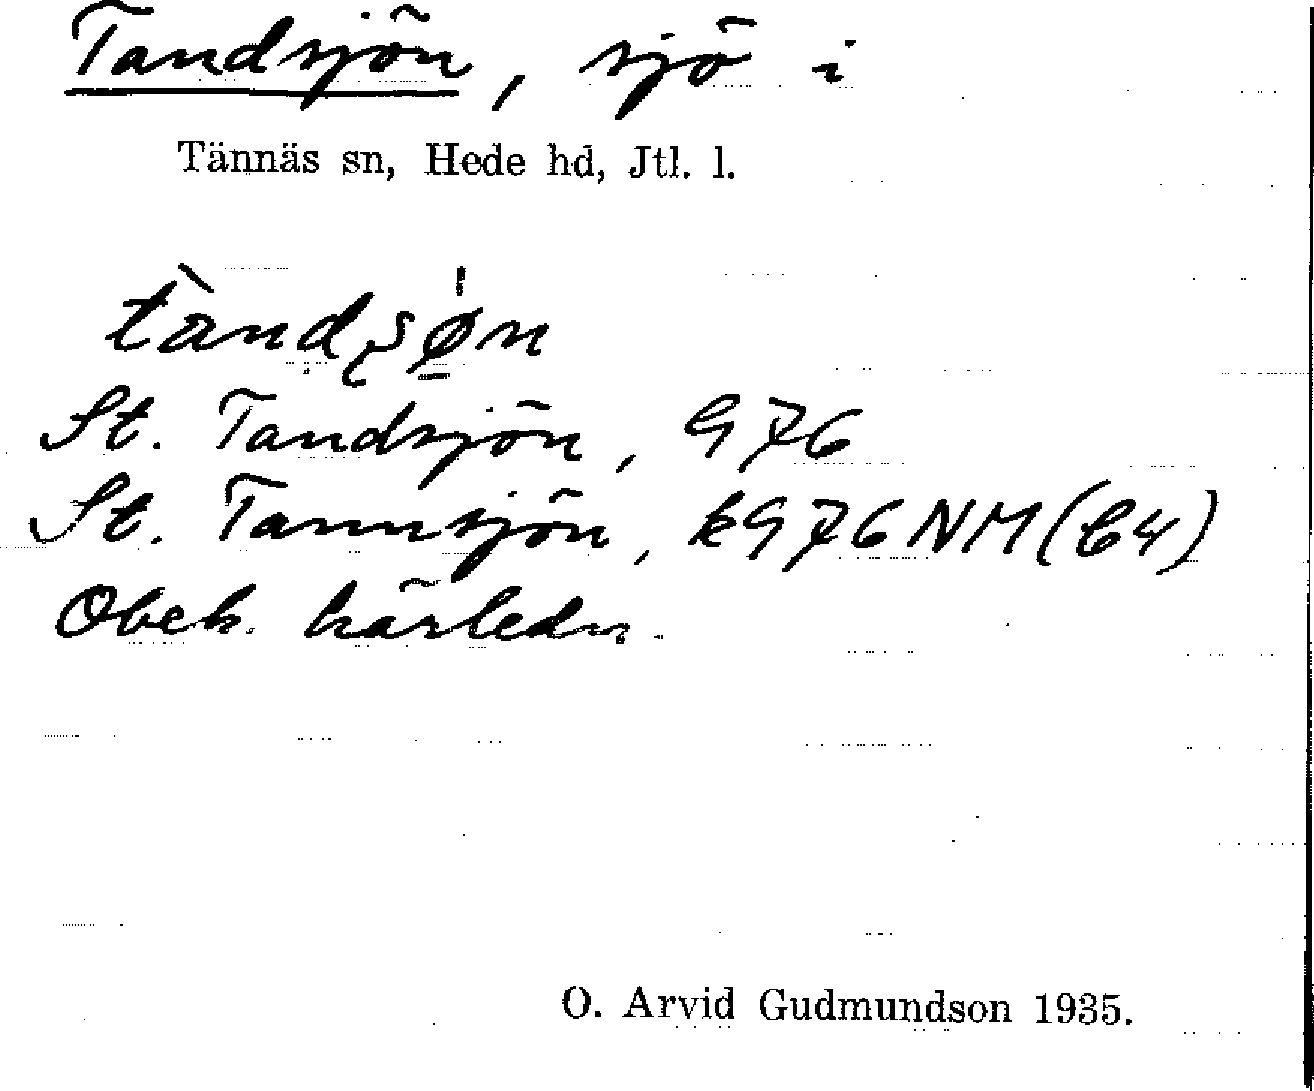 Tandsjön, sjö i
Tännäs sn, Hede hd, Jtl. l.
St. Tandsjön, G76
St. Tannsjön, kG76 NM (C4)
Obek. härledn.
O. Arvid Gudmundson 1935.